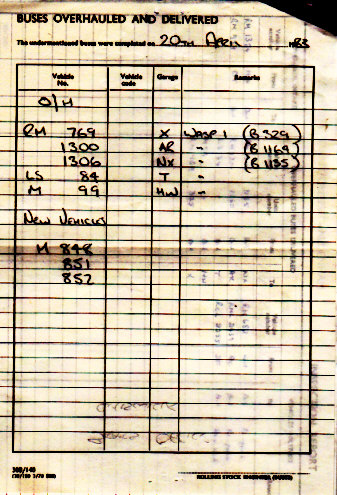 BUSES OVERHAULED AND DELIVERED
The undermentioned buses were completed on 20TH APRIL 1983
Vehicle No. Vehicle code Garage Remarks
O/H
RM 769 X WASP 1 (B 529)
1300 AR " (B 1169)
1306 NX " (B 1135)
LS 84 T "
M 99 HW "
NEW VEHICLES
M 848
851
852
ROLLING STOCK ENGINEER (BUSES)